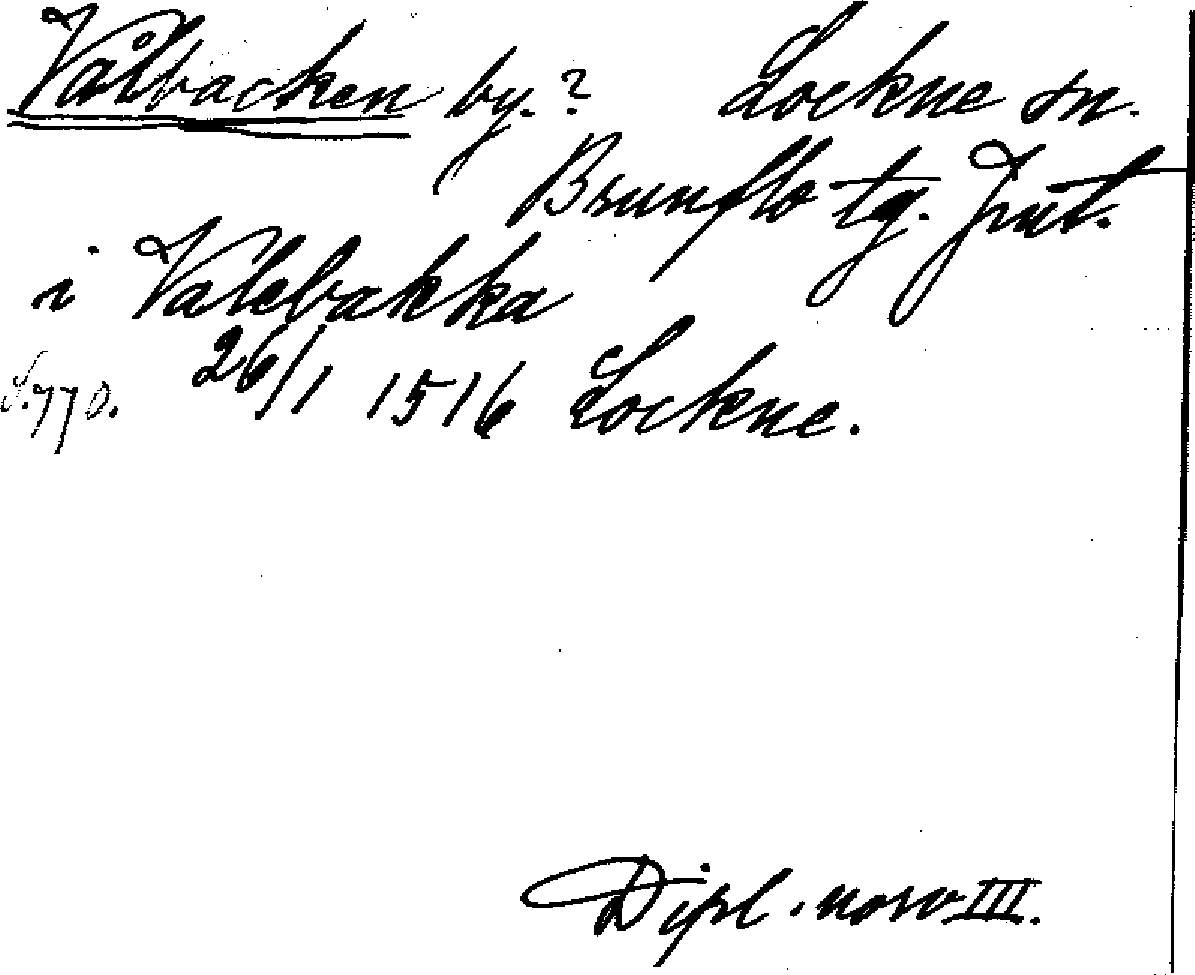 Vålbacken by.? Lockne sn.
Brunflo tg. Jmt.
i Valebakka
S.770. 26/1 1516 Lockne.
Dipl. norv III.